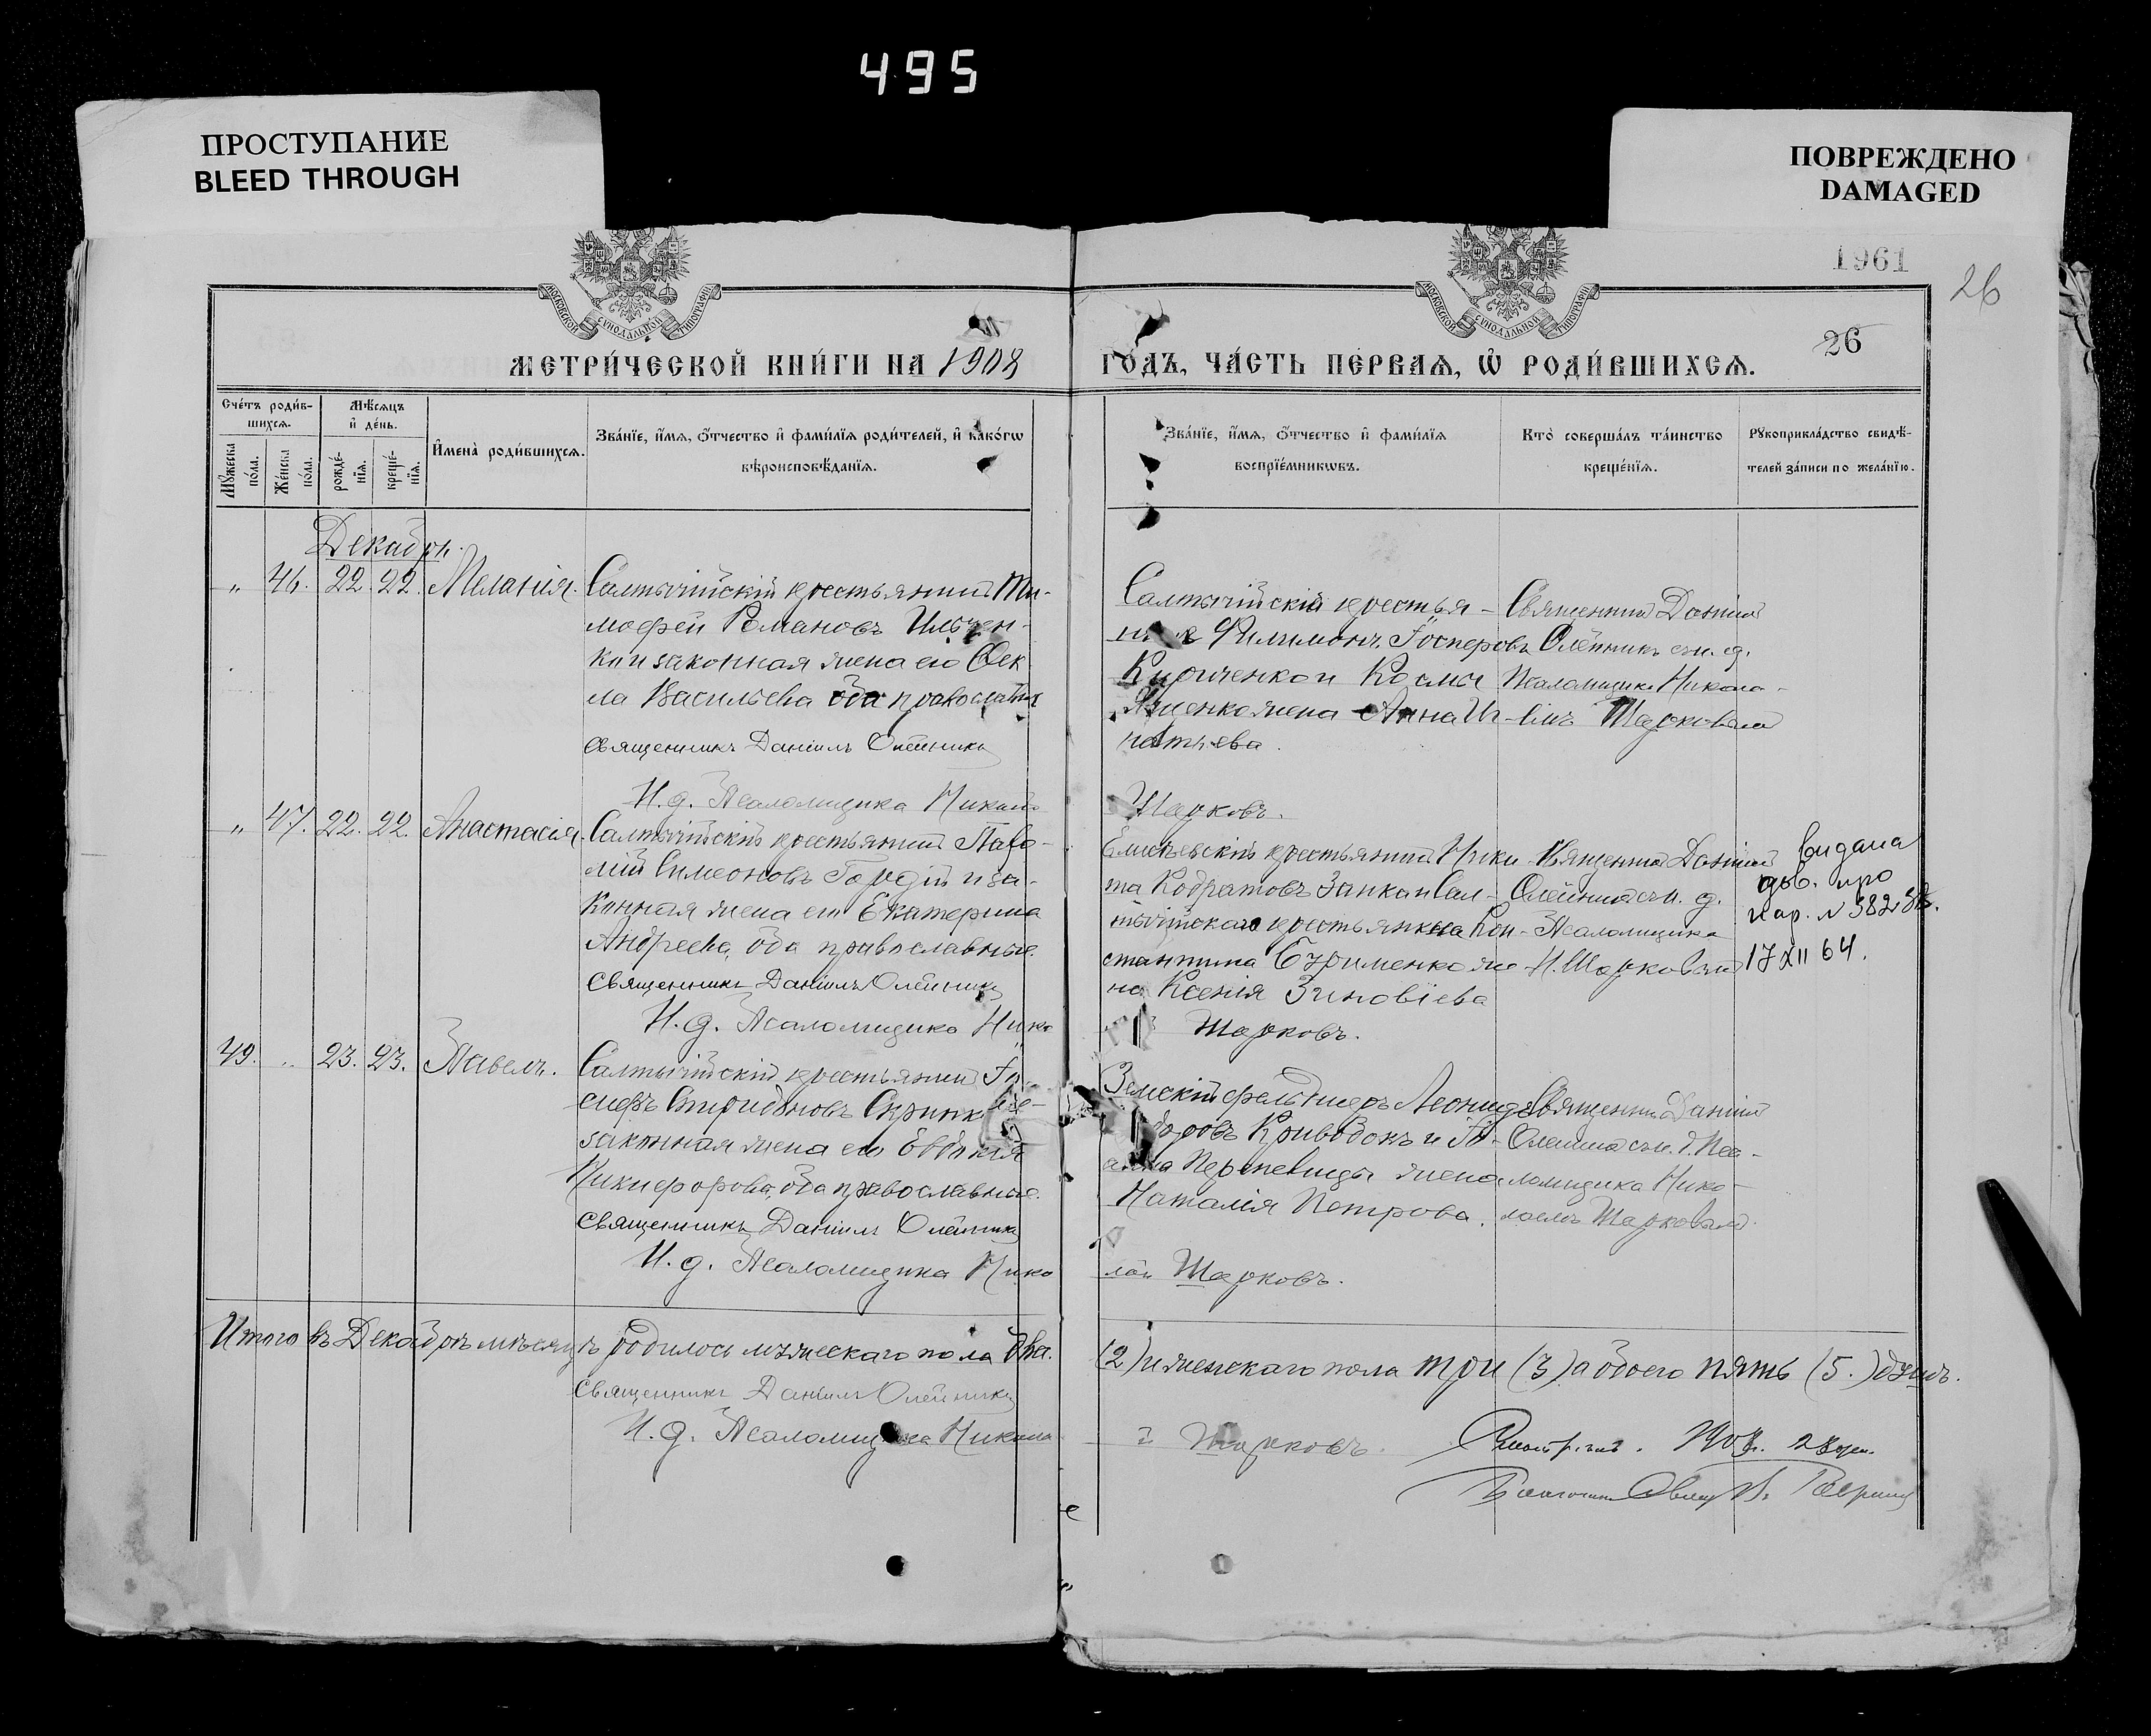 495
ПРОСТУПАНИЕ
BLEED THROUGH
ПОВРЕЖДЕНО
DAMAGED
1961
26
26
МОСКОВСКОЙ СѴНОДАЛЬНОЙ ТИПОГРАФІИ
МОСКОВСКОЙ СѴНОДАЛЬНОЙ ТИПОГРАФІИ
МЕТРИ́ЧЕСКОЙ КНИ́ГИ НА 1908
ГО́ДЪ, ЧА́СТЬ ПЕ́РВАѦ, Ѽ РОДИ́ВШИХСѦ.
Сче́тъ роди́в-
шихсѧ.
Мѣ́сѧцъ
и҆ де́нь.
Мꙋ́жеска
по́ла.
Же́нска
по́ла.
рожде́-
нїѧ.
креще́-
нїѧ.
И҆мена̀ роди́вшихсѧ.
Зва́нїе, и҆́мѧ, ѻ҆́тчество и҆ фами́лїѧ роди́телей, и҆ како́гѡ
вѣроисповѣ́данїѧ.
Зва́нїе, и҆́мѧ, ѻ҆́тчество и҆ фами́лїѧ
воспрїе́мникѡвъ.
Кто̀ соверша́лъ та́инство
креще́нїѧ.
Рꙋкоприкла́дство свидѣ́-
телей за́писи по жела́нїю.
Декабрь.
„ 46. 22. 22. Меланія. Салтычійскій крестьянинъ Ти-
мофей Романовъ Ильчен-
ко и законная жена его Фек
ла Васильева оба православные
Священникъ Даніилъ Олейникъ
И. д. Псаломщика Никол
Салтычійскій крестья-
Филимонъ Госперовъ
Кириченко и Космы
Яценко жена Анна Иг-
натьева.
Священникъ Даніилъ
Олейникъ съ и. д.
Псаломщика Никола-
емъ Шарковымъ
Шарковъ.
„ 47. 22. 22. Анастасія. Салтычійскій крестьянинъ Пафо-
мій Симеоновъ Гордій и за-
конная жена его Екатерина
Андреева, оба православные.
Священникъ Даніилъ Олейникъ
И. д. Псаломщика Нико
Елисѣевскій крестьянинъ Ники-
та Кодратовъ Заика и Сал-
тычійскаго крестьянина Кон-
стантина Бурименко же-
на Ксенія Зиновіева
Священникъ Даніилъ
Олейникъ съ и. д.
Псаломщика
Н. Шарковымъ
видана
дов. про
нар. N 38238.
17 XII 64.
Шарковъ.
49. „ 23. 23. Павелъ. Салтычійскій крестьянинъ Іо
сифъ Спиридоновъ Скрипк
законная жена его Евдокія
Никифорова, оба православные.
Священникъ Даніилъ Олейникъ
И. д. Псаломщика Нико
Земскій фельдшеръ Леонидъ
доровъ Криводокъ и Іо-
анна Перепевицы жена
Наталія Петрова.
Священникъ Даніилъ
Олейникъ съ и. д. Пса-
ломщика Нико-
лаемъ Шарковымъ.
лай Шарковъ.
Итого въ Декабрѣ мѣсяцѣ родилось мужескаго пола два
(2) и женскаго пола три (3) а обоего пять (5.) душъ.
Священникъ Даніилъ Олейникъ
И. д. Псаломщика Никола
й Шарковъ.